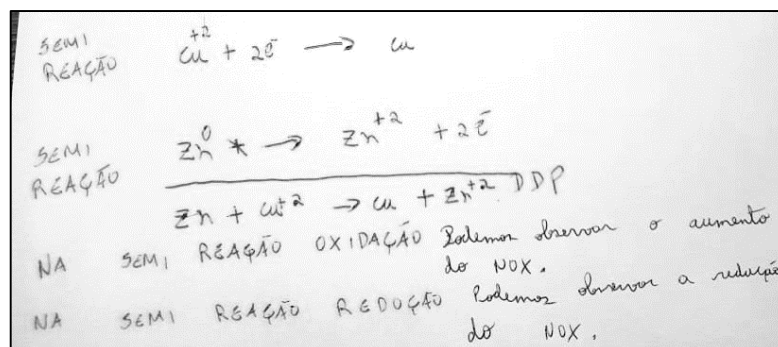 SEMI
REAÇÃO Cu+2 + 2e- → Cu
SEMI
REAÇÃO Zn0 * → Zn+2 + 2e-
Zn + Cu+2 → Cu + Zn+2 DDP
NA SEMI REAÇÃO OXIDAÇÃO Podemos observar o aumento
do NOX.
NA SEMI REAÇÃO REDUÇÃO Podemos observar a redução
do NOX.